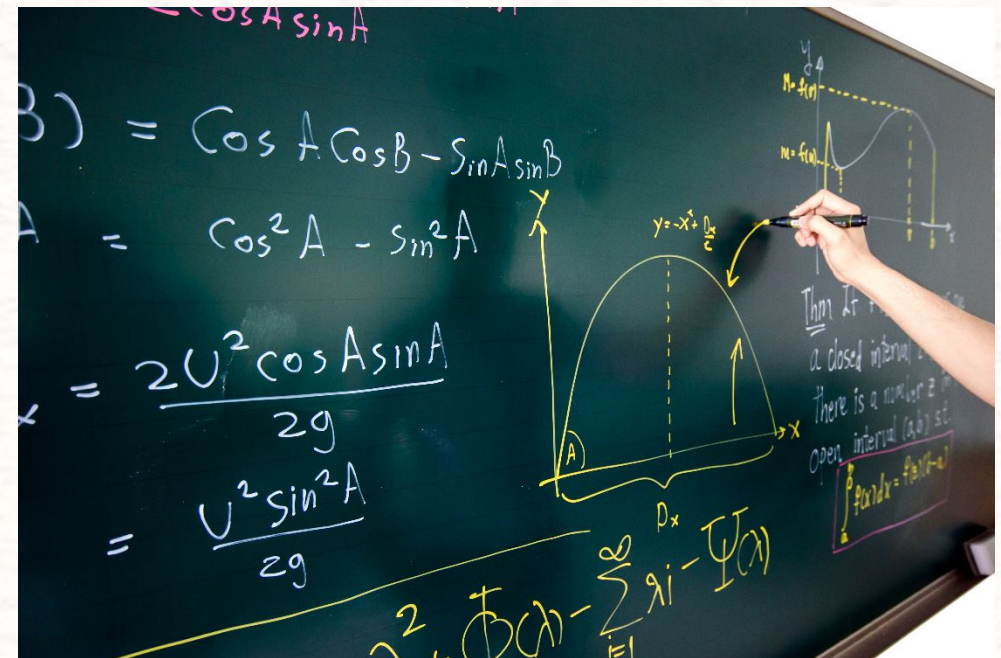 cosA sinA
B) = Cos A CosB - SinA sinB
A = Cos²A - Sin²A
x = 2U² cosAsinA / 2g
= U² sin²A / 2g
Y
y = -x² +
A
X
Dx
² Φ(λ) - ∞ Σ i=1 λi - Ψ(λ)
y
M = f(
m = f(
x
Thm If
a closed interval
there is a number z in
open interval (a,b) s.t.
∫ f(x)dx = f(z)(b-a)